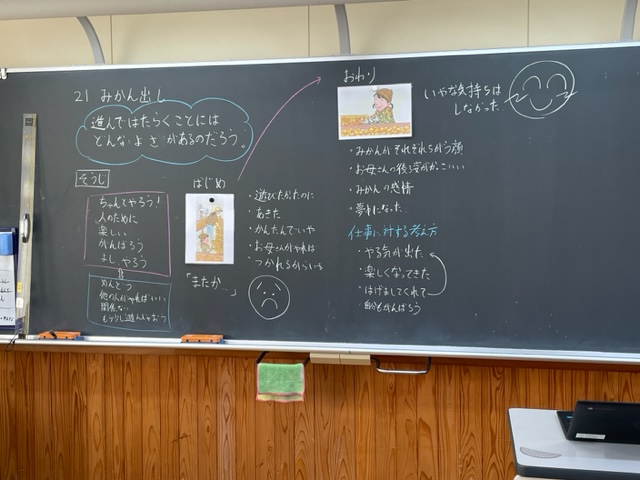 21 みかん出し
進んではたらくことには
どんなよさがあるのだろう。
そうじ
ちゃんとやろう!
人のために
楽しい
がんばろう
よし、やろう
めんどう
他の人がやればいい
関係ない
もう少し遊んじゃおう
はじめ
「またか…」
・遊びたかったのに
・あきた
・かんたんでいや
・お母さんがやれば
・つかれるからいや
おわり
いやな気持ちは
しなかった
・みかんがそれぞれちがう顔
・お母さんの後ろ姿がかっこいい
・みかんの感情
・夢中になった
仕事に対する考え方
・やる気が出た
・楽しくなってきた
・はげましてくれて
自分もがんばろう